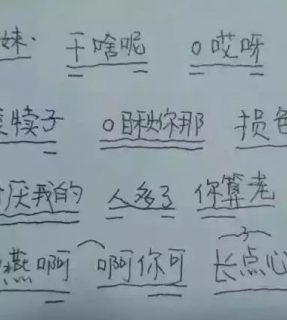 妹· 干啥呢 0哎呀
犊子 0瞅你那 损色
厌我的 人多了 你算老
燕啊 啊你可 3 长点心